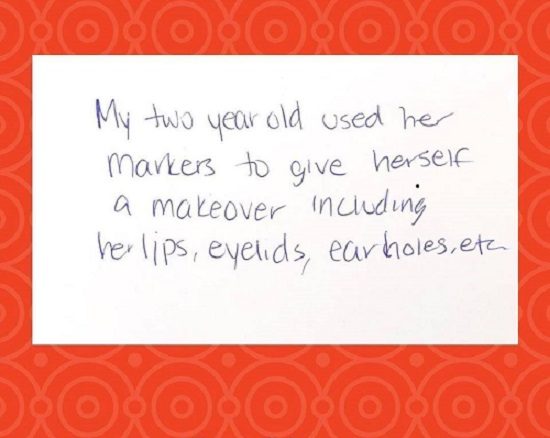 My two year old used her
markers to give herself
a makeover including
her lips, eyelids, ear holes, etc